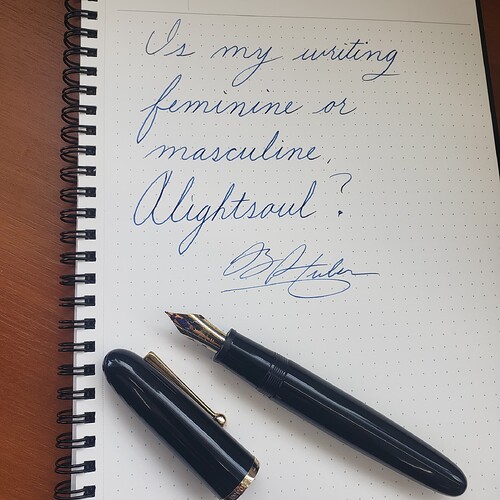 Is my writing
feminine or
masculine,
Alightsoul?